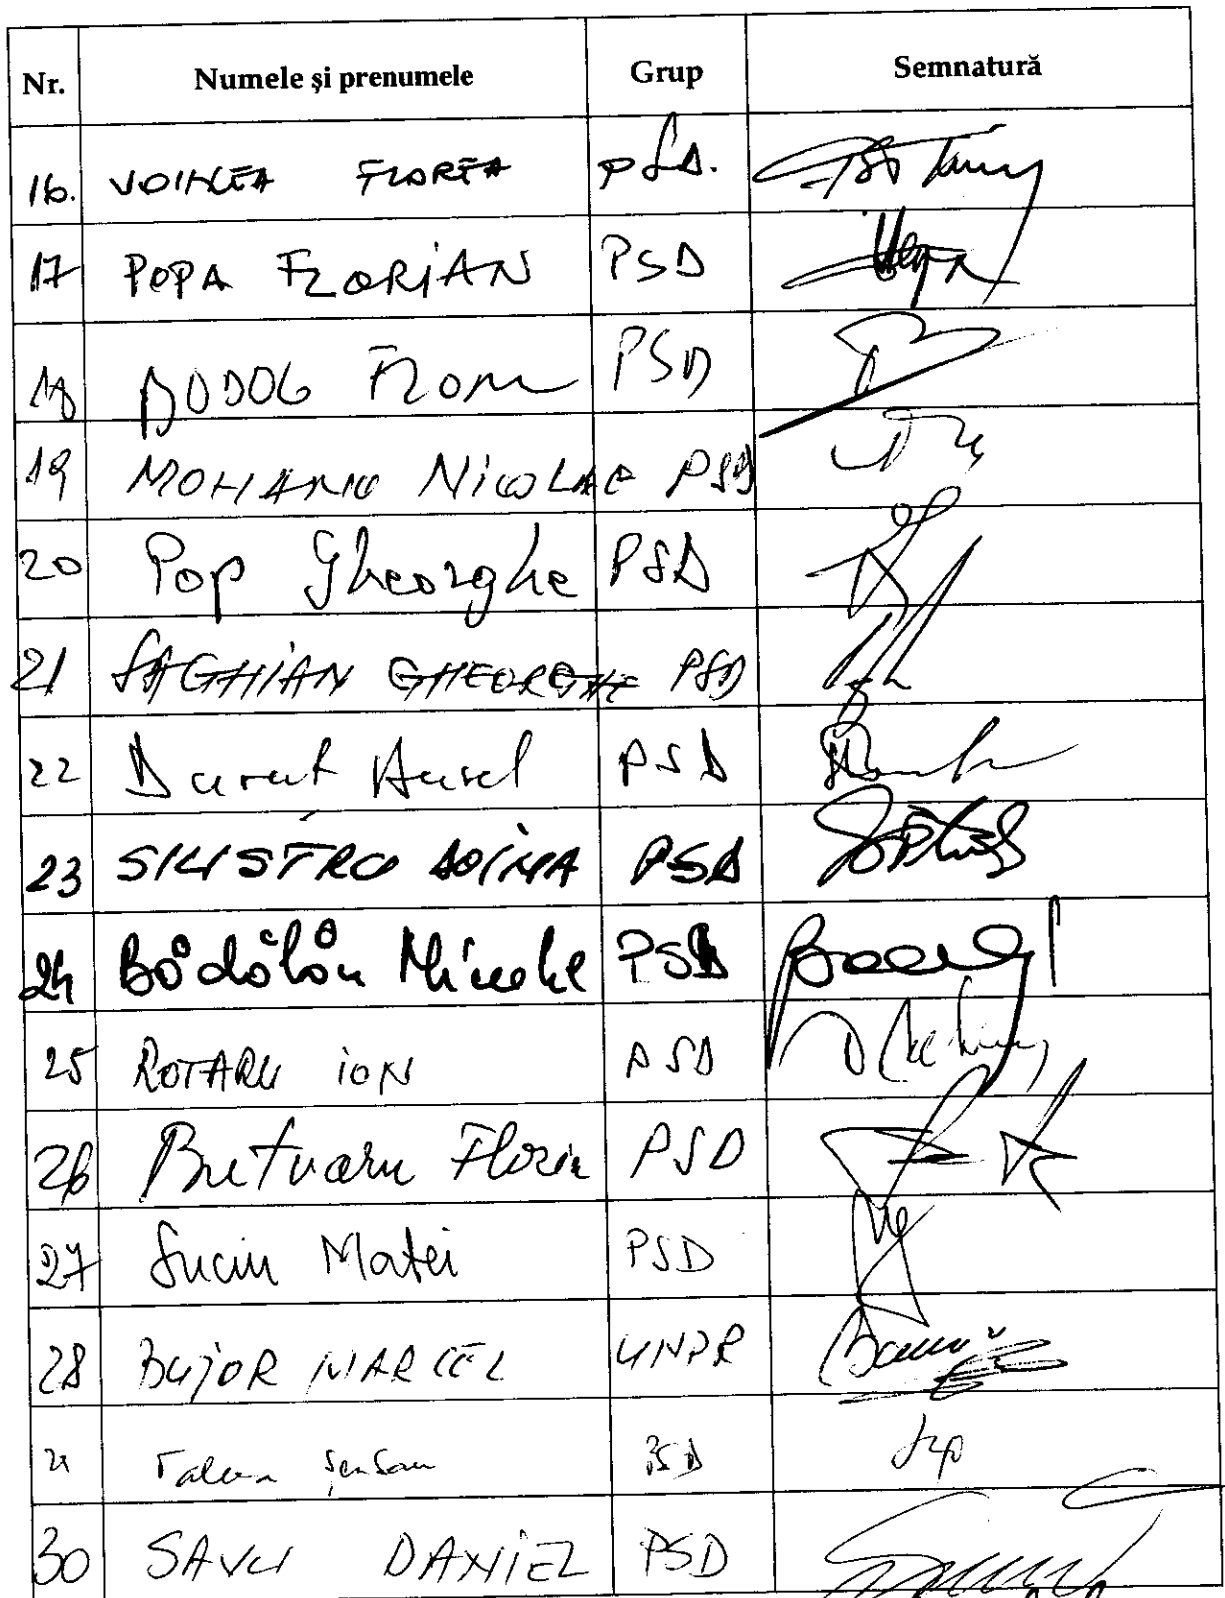 Nr. Numele și prenumele Grup Semnatură
16. VOINEA FLOREA PSD.
17 POPA FLORIAN PSD
18 BODOG Florian PSD
19 MOHANU NICOLAE PSD
20 Pop Gheorghe PSD
21 SAGHIAN GHEORGHE PSD
22 Duruț Aurel PSD
23 SILISTRU DOINA PSD
24 Bădălău Niculae PSD
25 ROTARU ION PSD
26 Butunaru Florin PSD
27 Suciu Matei PSD
28 BUJOR MARCEL UNPR
PSD
30 SAVU DANIEL PSD